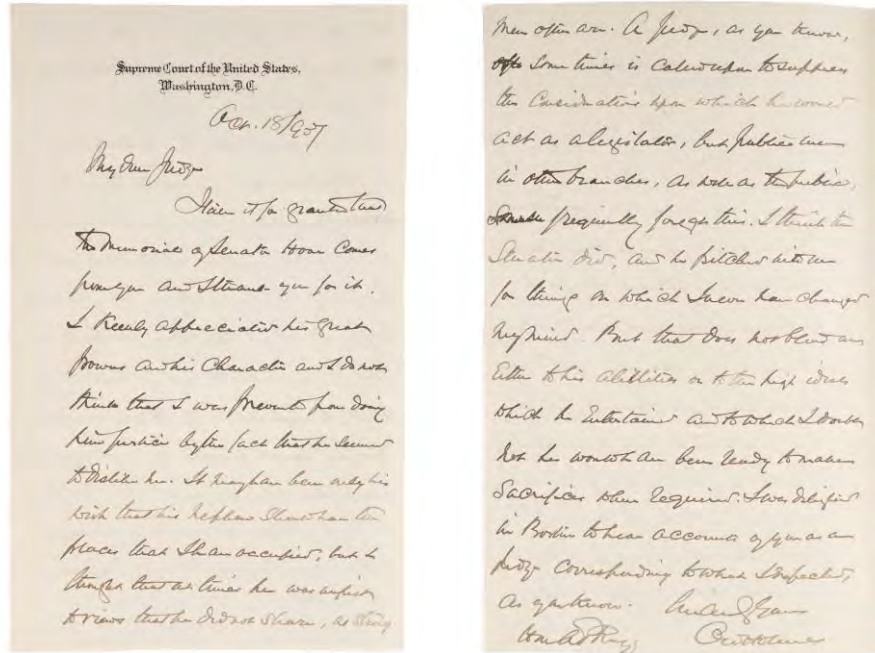 Supreme Court of the United States,
Washington, D.C.
Oct. 18/907
My dear Judge
I take it for granted that
the memorial of Senator Hoar comes
from you and I thank you for it.
I keenly appreciated his great
powers and his character and I do not
think that I was prevented from doing
him justice by the fact that he seemed
to dislike me. It may have been only his
wish that his nephew should have the
places that I have occupied, but I
thought that at times he was unjust
to views that he did not share, as strong
men often are. A Judge, as you know,
sometimes is called upon to suppress
the considerations upon which he would
act as a legislator, but public men
in other branches, as well as the public,
frequently forget this. I think the
Senator did, and he pitched into me
for things on which I never have changed
my mind. But that does not blind me
either to his abilities or to the high ideas
which he entertained and to which I doubt
not he would have been ready to make
sacrifices when required. I was delighted
in Boston to hear accounts of you as a
judge corresponding to what I expected,
as you know.
Hon A P Rugg
O W Holmes